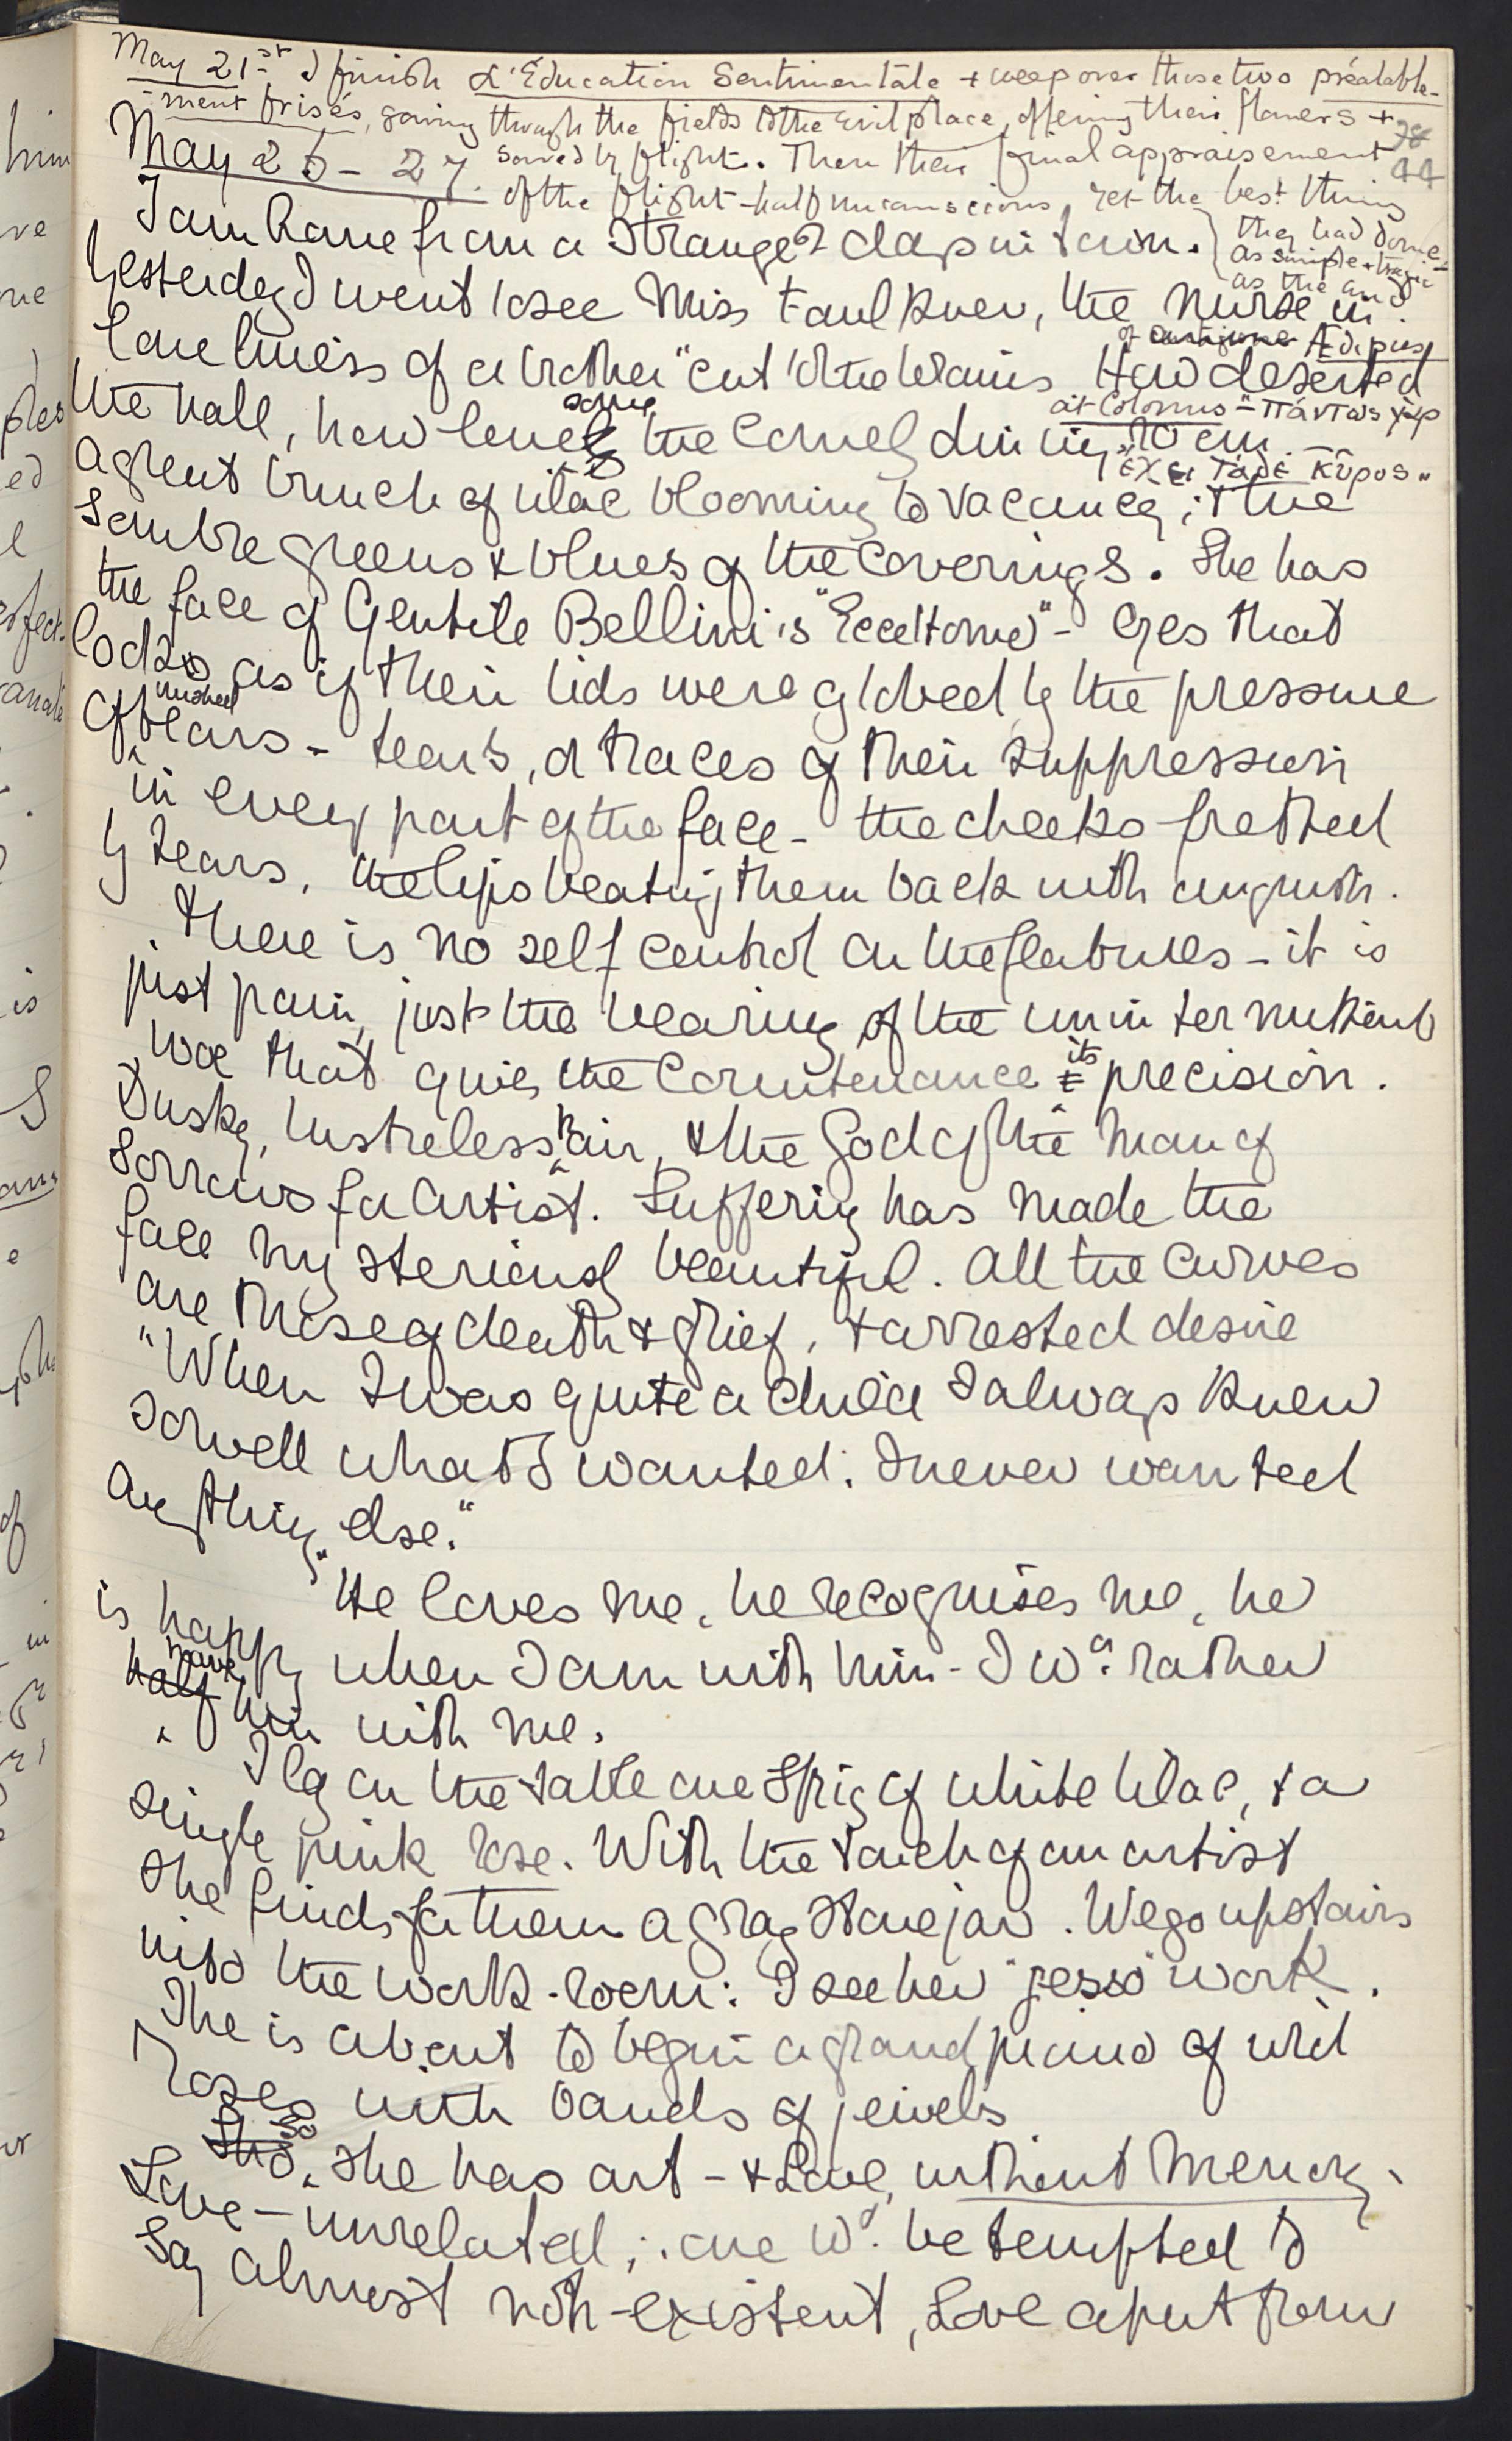 May 21st I finish L'Éducation Sentimentale + weep over those two préalable-
ment frisés, going through the fields to the Evil place, offering their flowers +
saved by flight. Then their final appraisement
of the flight - half unconscious, yet the best thing
they had done -
as simple + tragic
as the end
of Antigone Œdipus
at Colonus - "πάντως γὰρ
ἔχει τάδε κῦρος"
44
May 26 - 27.
I am home from a strange 2 days in town.
Yesterday I went to see Miss Faulkner, the nurse in
loneliness of a brother "cut" to the brains How deserted
the hall, how lonely some the lonely dining room -
a great bunch of lilac blooming to vacancy; the
sombre greens & blues of the coverings. She has
the face of Gentile Bellini's "Ecce Homo" - eyes that
look as if their lids were globed by the pressure
of unshed tears - tears, or traces of their suppression
in every part of the face - the cheeks fretted
by tears, the lips beating them back with anguish.
There is no self control on the features - it is
just pain, just the bearing of the unintermittent
woe that gives the countenance its precision.
Dusky, lustreless hair, & the God of the Man of
Sorrows for artist. Suffering has made the
face mysteriously beautiful. All the curves
are those of death & grief, & arrested desire
"When I was quite a child I always knew
so well what I wanted. I never wanted
anything else."
"He loves me, he recognises me, he
is happy when I am with him - I wd. rather
half have him with me.
I lay on the table one sprig of white lilac, & a
single pink rose. With the touch of an artist
she finds for them a gray stone jar. We go upstairs
into the work-room: I see her "gesso" work.
She is about to begin a grand piano of wild
roses with bands of jewels
Tho' So, she has art - & Love, without Memory,
Love - unrelated; one wd. be tempted to
say almost non-existent, Love apart from